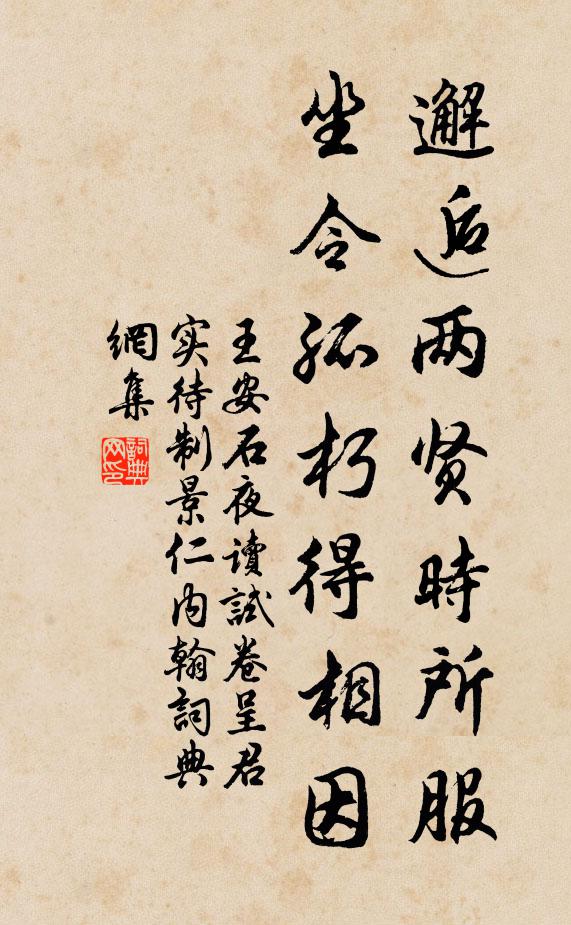 邂逅两贤時所服
坐令孤朽得相因
王安石夜读試卷呈君
实待制景仁内翰詞典
網集
詞典
网印